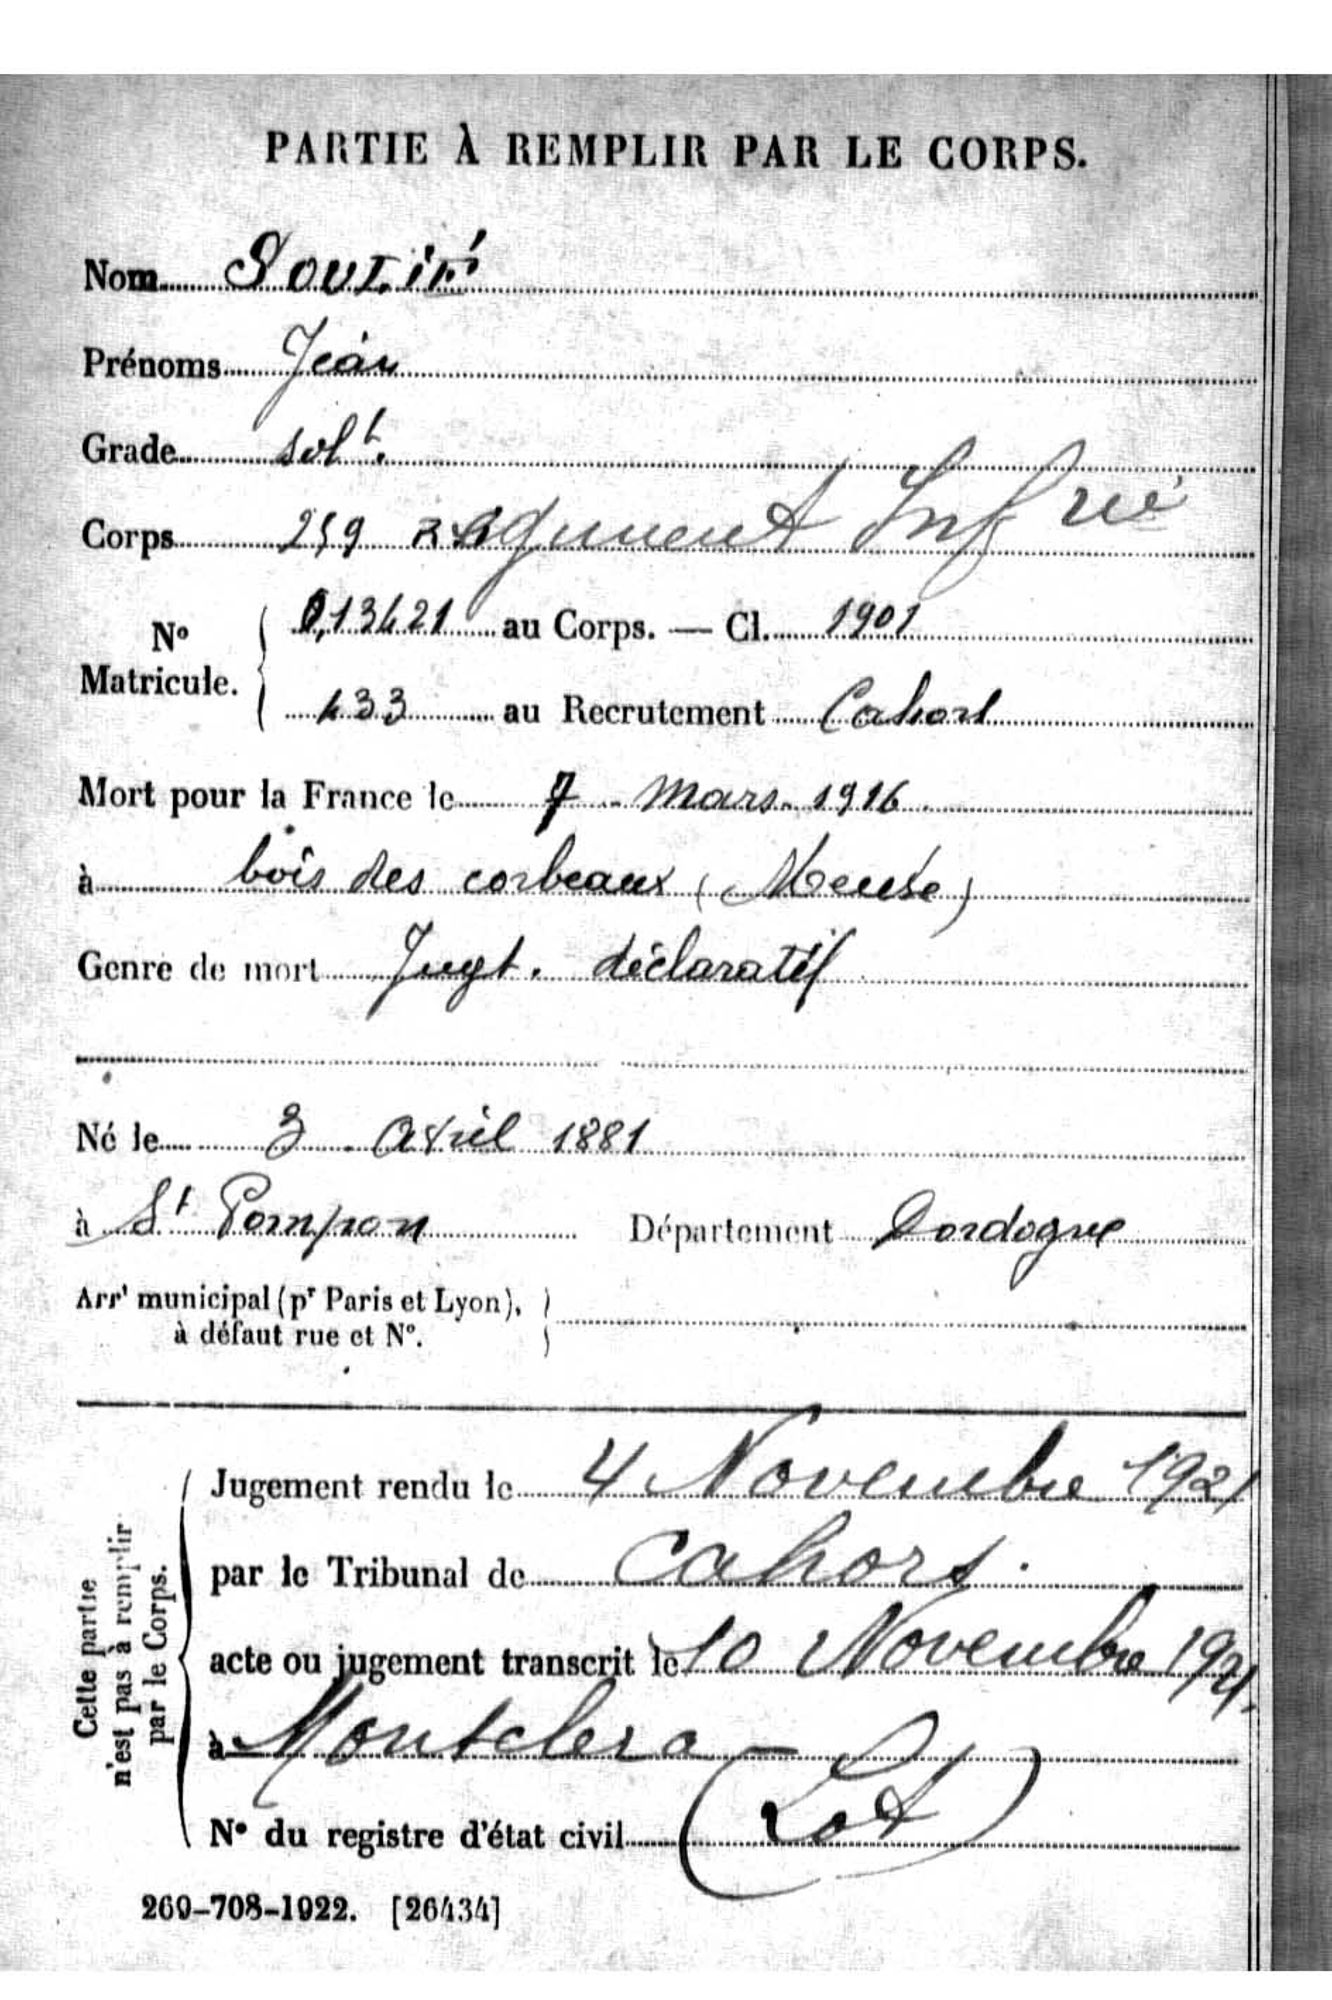 PARTIE À REMPLIR PAR LE CORPS.
Nom SOULIÉ
Prénoms Jean
Grade solt.
Corps 259 régiment Infrie
No Matricule. 0,13421 au Corps. — Cl. 1901
433 au Recrutement Cahors
Mort pour la France le 7 mars 1916
à bois des corbeaux (Meuse)
Genre de mort Jugt. déclaratif
Né le 3 avril 1881
à St Pompon Département Dordogne
Arrt municipal (pr Paris et Lyon),
à défaut rue et No.
Cette partie
n'est pas à remplir
par le Corps.
Jugement rendu le 4 Novembre 1921
par le Tribunal de Cahors.
acte ou jugement transcrit le 10 Novembre 1921
à Montclera –
(Lot)
No du registre d'état civil
269-708-1922. [26434]